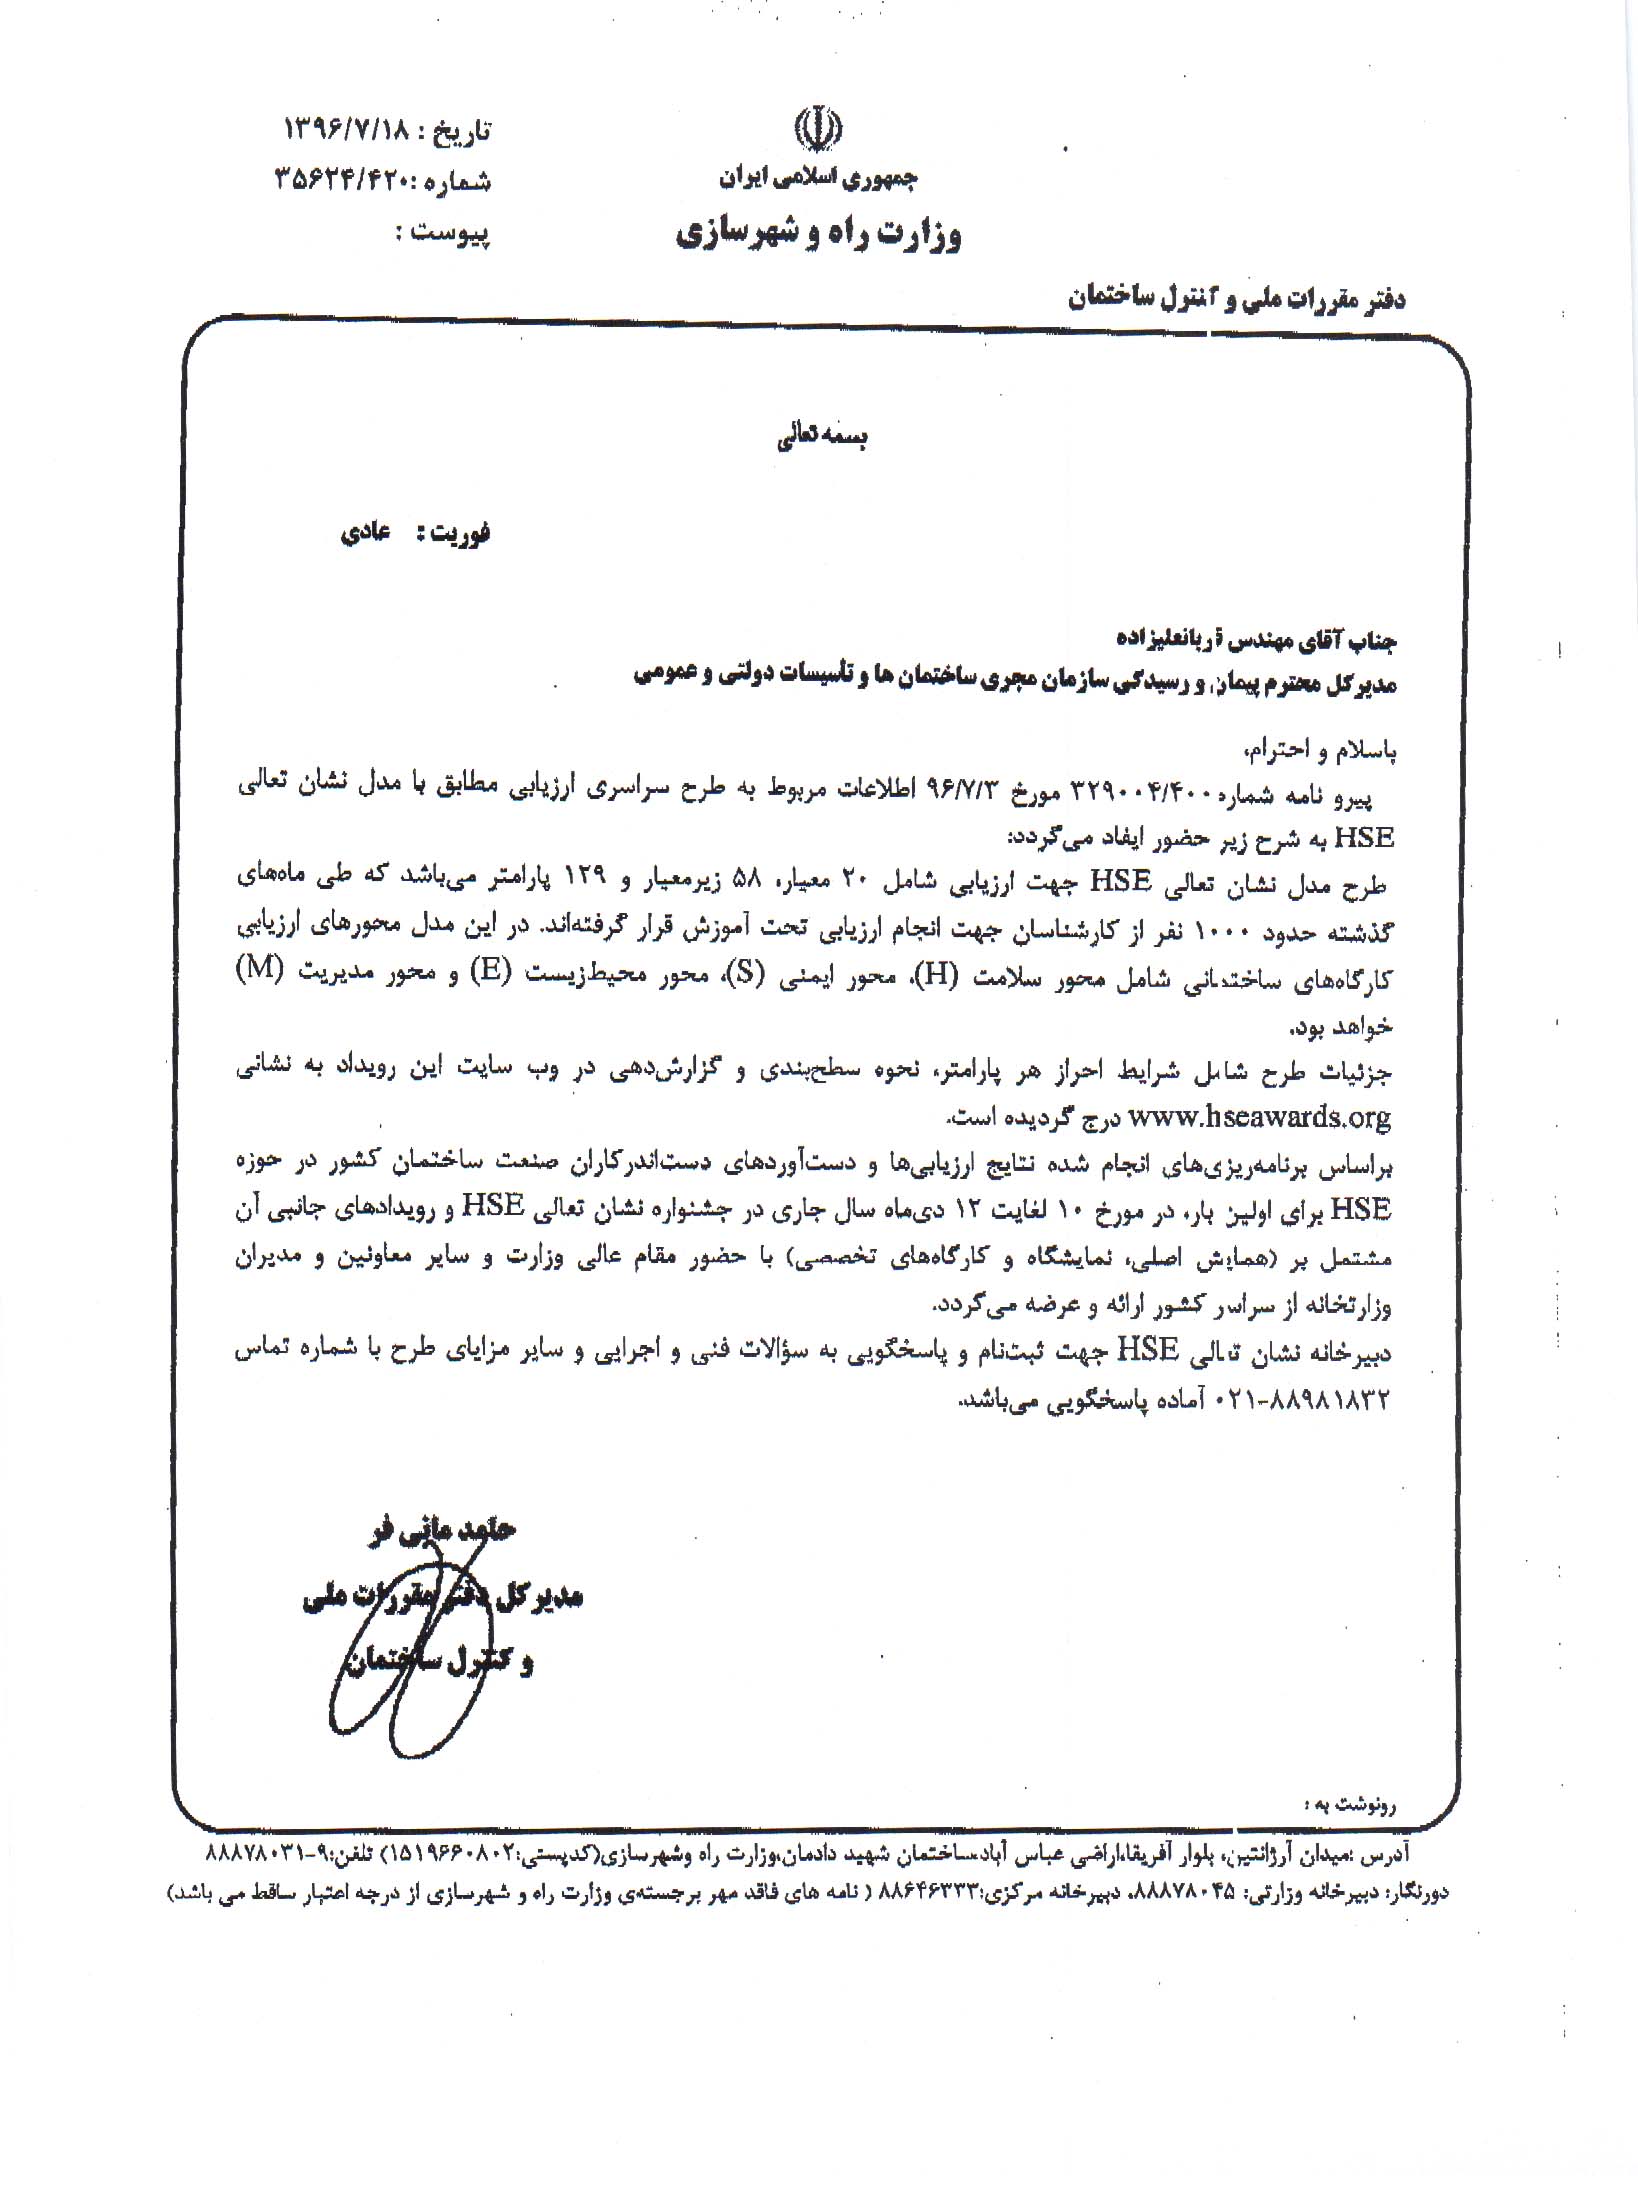 تاریخ : ۱۳۹۶/۷/۱۸
شماره :۳۵۶۲۴/۴۲۰
پیوست :
جمهوری اسلامی ایران
وزارت راه و شهرسازی
دفتر مقررات ملی و کنترل ساختمان
بسمه تعالی
فوریت : عادی
جناب آقای مهندس قربانعلیزاده
مدیرکل محترم پیمان و رسیدگی سازمان مجری ساختمان ها و تأسیسات دولتی و عمومی
باسلام و احترام،
پیرو نامه شماره ۳۲۹۰۰۴/۴۰۰ مورخ ۹۶/۷/۳ اطلاعات مربوط به طرح سراسری ارزیابی مطابق با مدل نشان تعالی
HSE به شرح زیر حضور ایفاد می‌گردد:
طرح مدل نشان تعالی HSE جهت ارزیابی شامل ۲۰ معیار، ۵۸ زیرمعیار و ۱۲۹ پارامتر می‌باشد که طی ماه‌های
گذشته حدود ۱۰۰۰ نفر از کارشناسان جهت انجام ارزیابی تحت آموزش قرار گرفته‌اند. در این مدل محورهای ارزیابی
کارگاه‌های ساختمانی شامل محور سلامت (H)، محور ایمنی (S)، محور محیط‌زیست (E) و محور مدیریت (M)
خواهد بود.
جزئیات طرح شامل شرایط احراز هر پارامتر، نحوه سطح‌بندی و گزارش‌دهی در وب سایت این رویداد به نشانی
www.hseawards.org درج گردیده است.
براساس برنامه‌ریزی‌های انجام شده نتایج ارزیابی‌ها و دست‌آوردهای دست‌اندرکاران صنعت ساختمان کشور در حوزه
HSE برای اولین بار، در مورخ ۱۰ لغایت ۱۲ دی‌ماه سال جاری در جشنواره نشان تعالی HSE و رویدادهای جانبی آن
مشتمل بر (همایش اصلی، نمایشگاه و کارگاه‌های تخصصی) با حضور مقام عالی وزارت و سایر معاونین و مدیران
وزارتخانه از سراسر کشور ارائه و عرضه می‌گردد.
دبیرخانه نشان تعالی HSE جهت ثبت‌نام و پاسخگویی به سؤالات فنی و اجرایی و سایر مزایای طرح با شماره تماس
۰۲۱-۸۸۹۸۱۸۳۲ آماده پاسخگویی می‌باشد.
حامد مانی فر
مدیر کل دفتر مقررات ملی
و کنترل ساختمان
رونوشت به :
آدرس :میدان آرژانتین، بلوار آفریقا،اراضی عباس آباد،ساختمان شهید دادمان،وزارت راه وشهرسازی(کدپستی:۱۵۱۹۶۶۰۸۰۲) تلفن:۹-۸۸۸۷۸۰۳۱
دورنگار: دبیرخانه وزارتی: ۸۸۸۷۸۰۴۵، دبیرخانه مرکزی:۸۸۶۴۶۳۳۳ ( نامه های فاقد مهر برجسته‌ی وزارت راه و شهرسازی از درجه اعتبار ساقط می باشد)